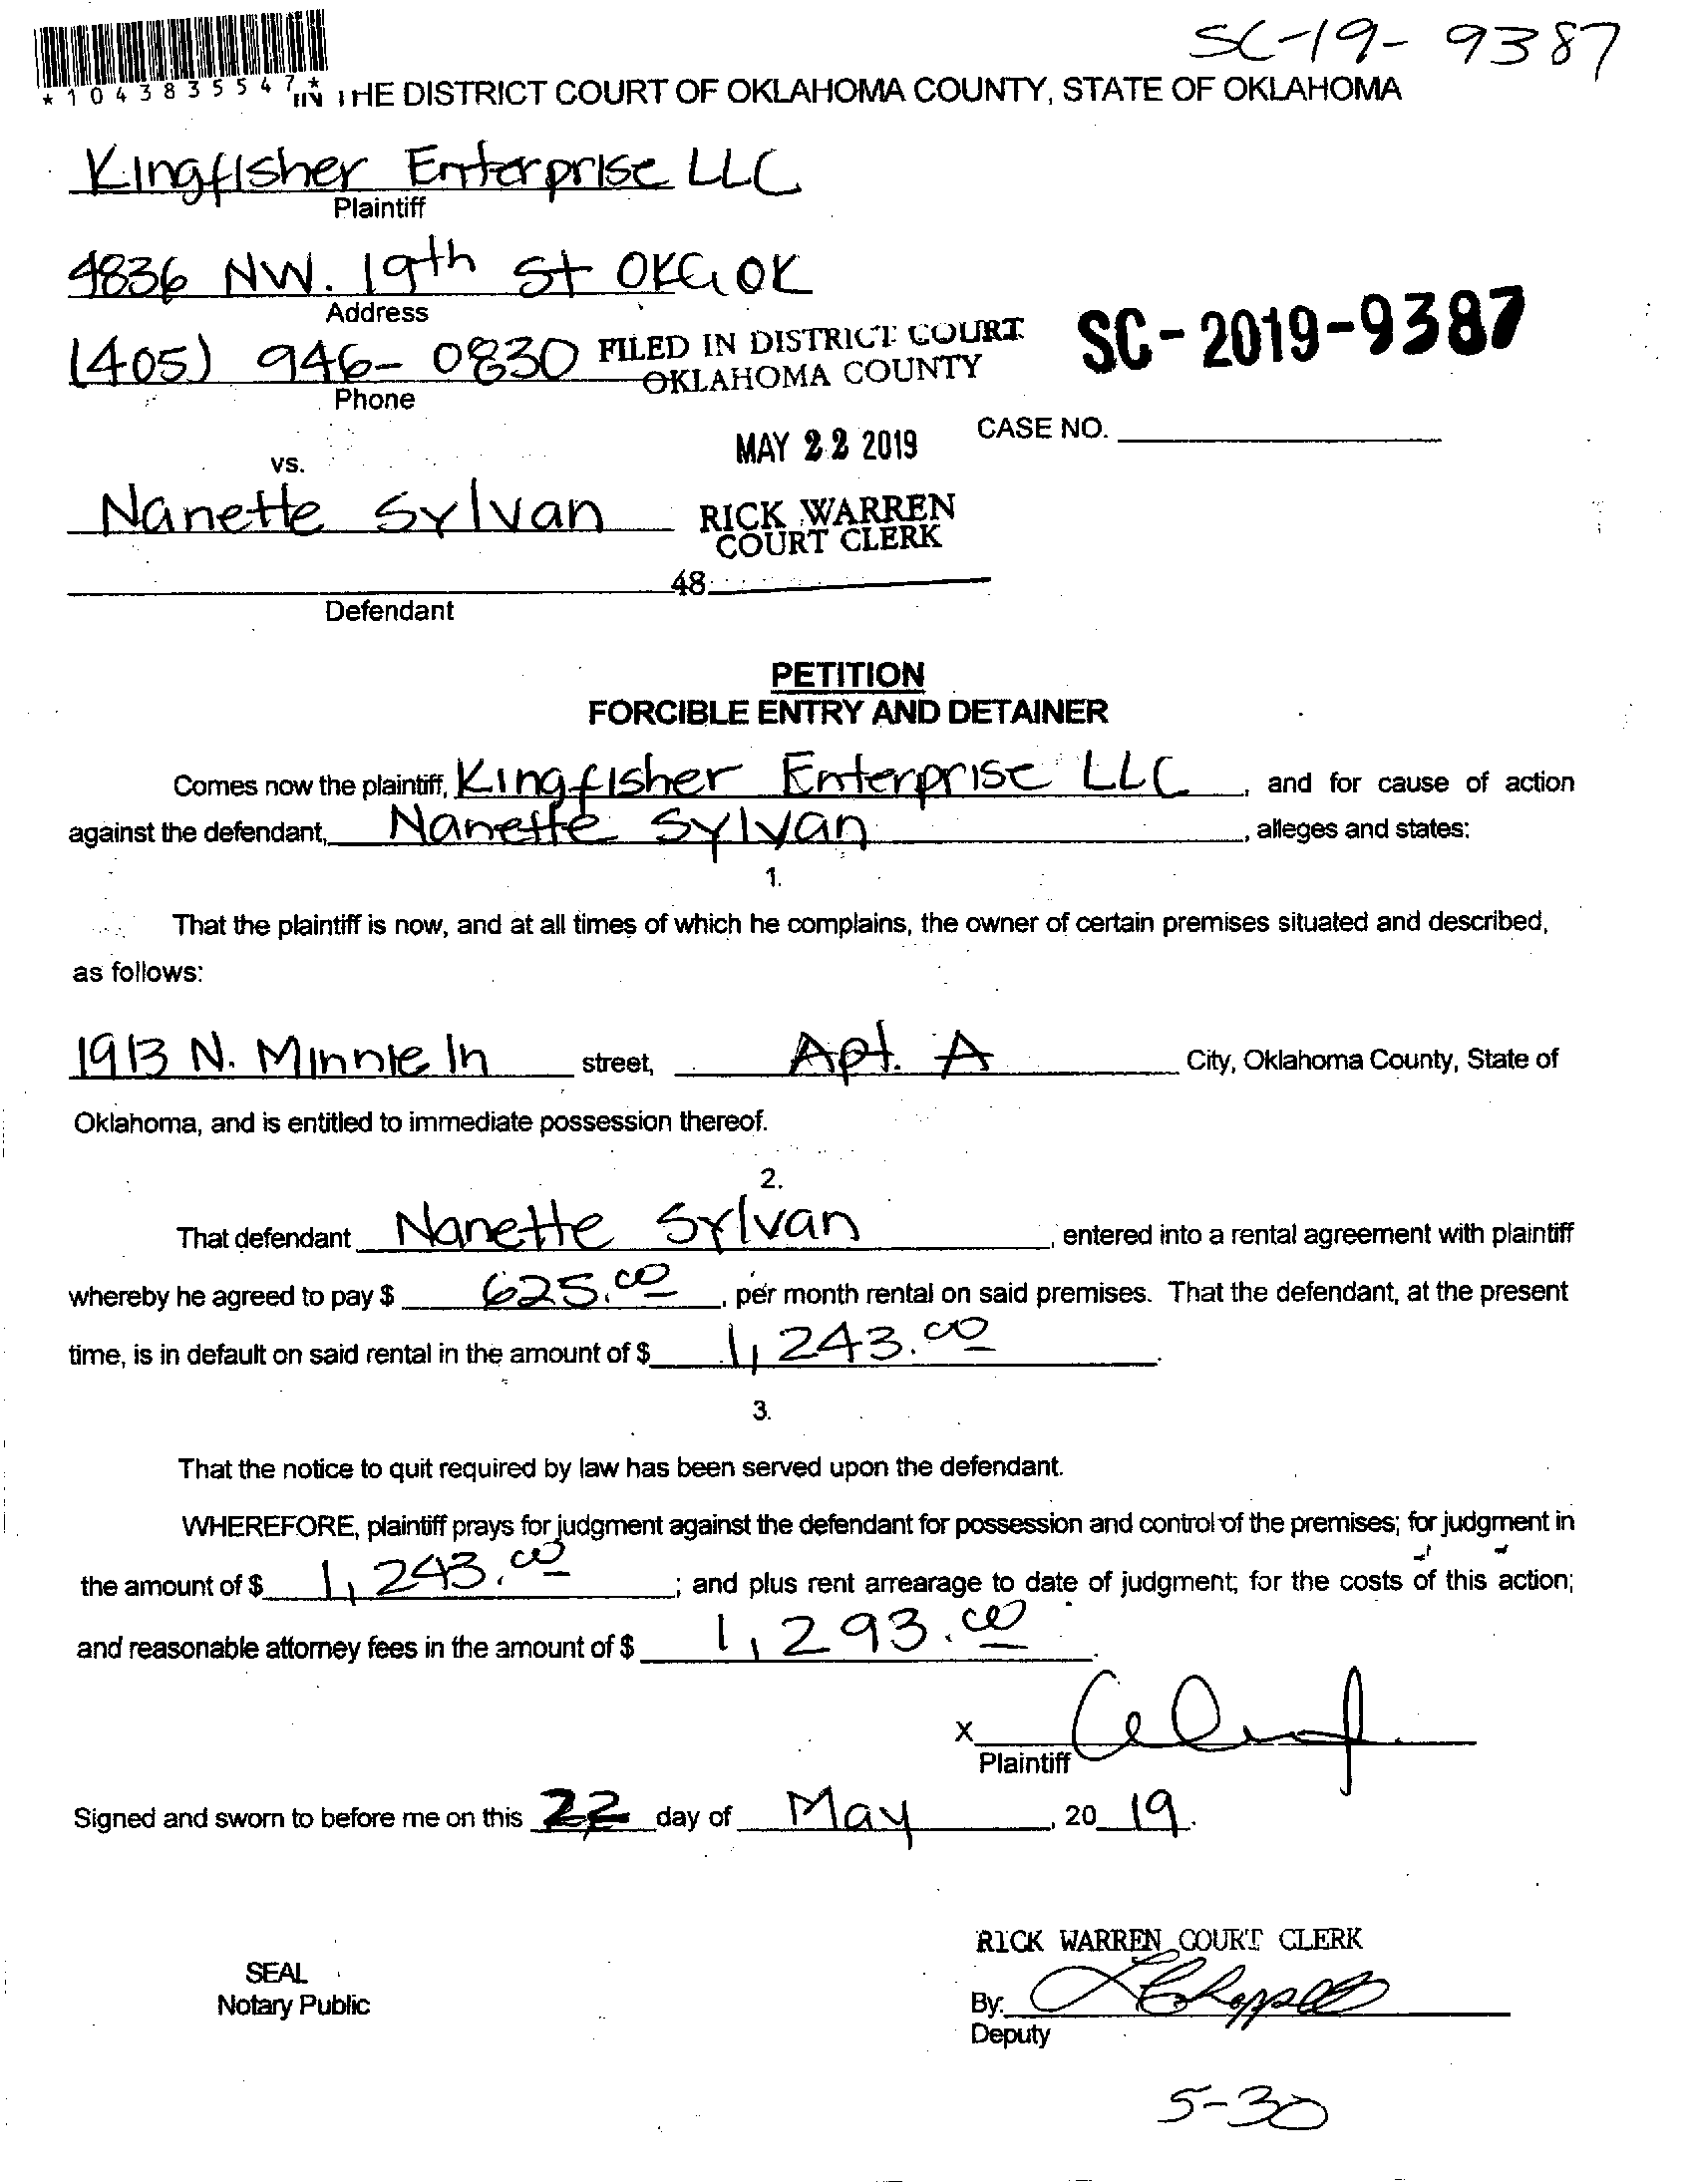 SC-19-9387
*1043835547*
IN THE DISTRICT COURT OF OKLAHOMA COUNTY, STATE OF OKLAHOMA
Kingfisher Enterprise LLC
Plaintiff
4836 NW. 19th St OKC, OK
Address
(405) 946-0830
Phone
FILED IN DISTRICT COURT
OKLAHOMA COUNTY
SC-2019-9387
MAY 22 2019
CASE NO.
vs.
Nanette Sylvan
RICK WARREN
COURT CLERK
48
Defendant
PETITION
FORCIBLE ENTRY AND DETAINER
Comes now the plaintiff, Kingfisher Enterprise LLC, and for cause of action
against the defendant, Nanette Sylvan, alleges and states:
1.
That the plaintiff is now, and at all times of which he complains, the owner of certain premises situated and described,
as follows:
1913 N. Minnie ln street, Apt. A City, Oklahoma County, State of
Oklahoma, and is entitled to immediate possession thereof.
2.
That defendant Nanette Sylvan, entered into a rental agreement with plaintiff
whereby he agreed to pay $ 625.00, per month rental on said premises. That the defendant, at the present
time, is in default on said rental in the amount of $ 1,243.00.
3.
That the notice to quit required by law has been served upon the defendant.
WHEREFORE, plaintiff prays for judgment against the defendant for possession and control of the premises; for judgment in
the amount of $ 1,243.00; and plus rent arrearage to date of judgment; for the costs of this action;
and reasonable attorney fees in the amount of $ 1,293.00.
X
Plaintiff
Signed and sworn to before me on this 22 day of May, 2019.
RICK WARREN COURT CLERK
SEAL
Notary Public
By:
Deputy
5-30